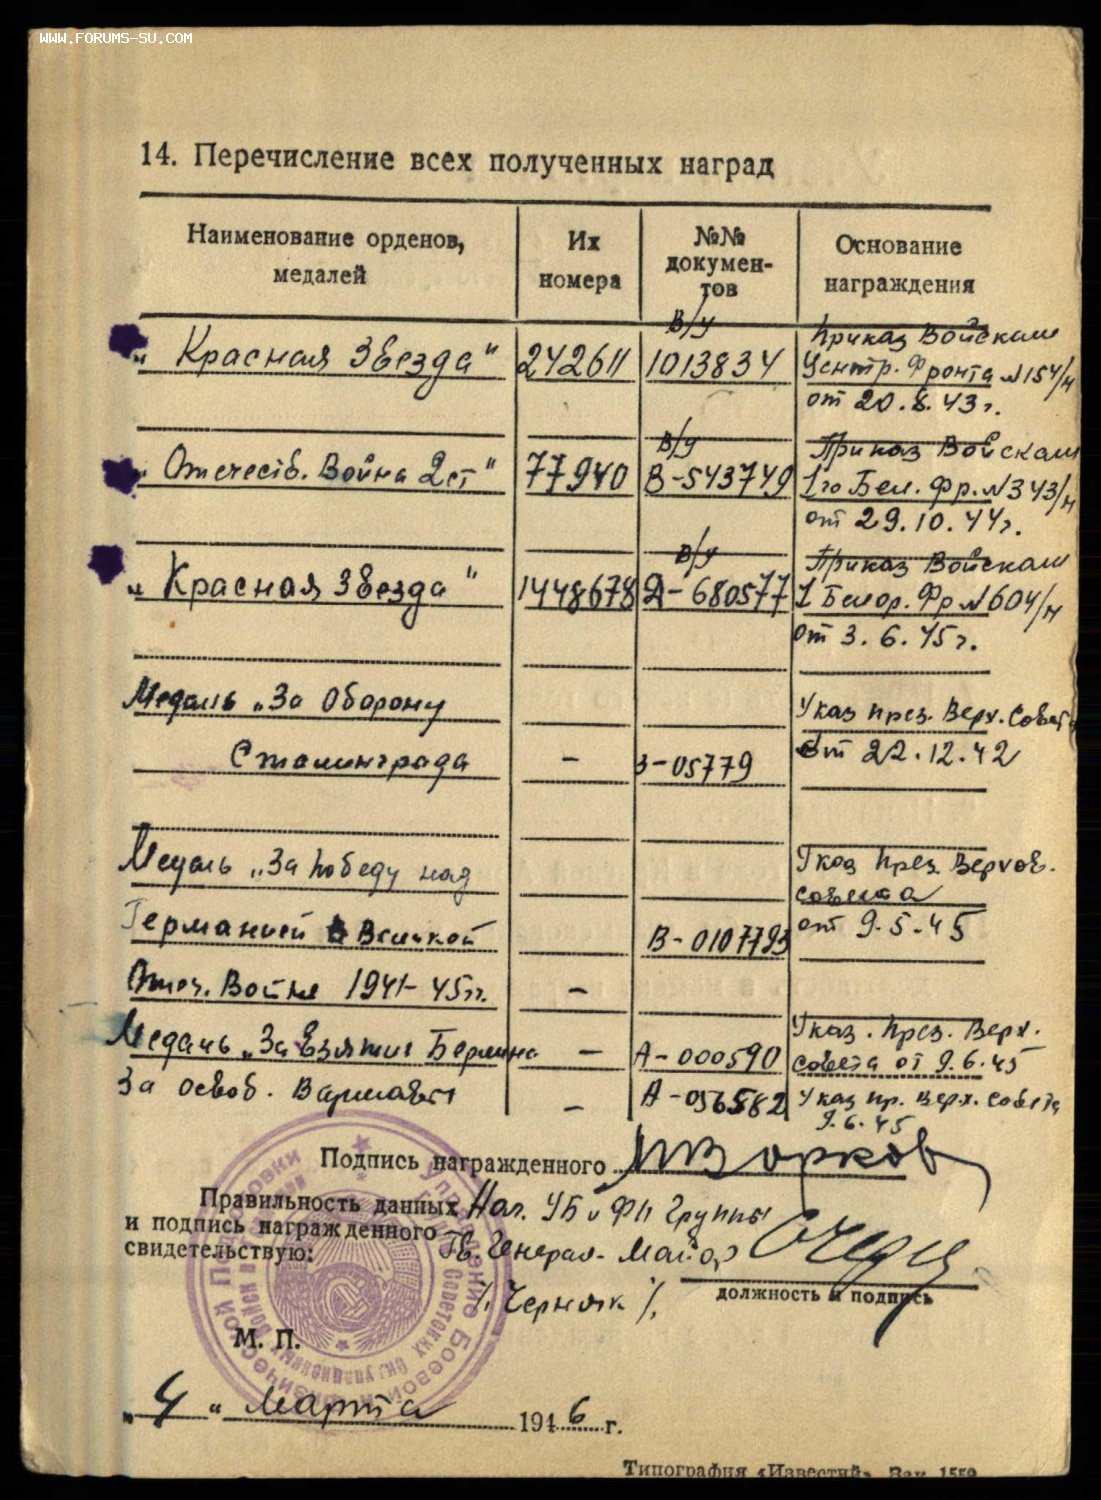 WWW.FORUMS-SU.COM
14. Перечисление всех полученных наград
Наименование орденов, медалей
Их номера
№№ докумен-тов
Основание награждения
„Красная Звезда" 242611 в/у 1013834 Приказ Войскам Центр. Фронта №154/н от 20.8.43г.
„Отечеств. Война 2ст" 77940 в/у В-543749 Приказ Войскам 1го Бел. Фр. №343/н от 29.10.44г.
„Красная Звезда" 1448678 в/у Д-680577 Приказ Войскам 1 Белор. Фр №604/н от 3.6.45г.
Медаль „За Оборону
Сталинграда - З-05779 Указ през. Верх. Совета от 22.12.42
Медаль „За победу над
Германией в Великой
Отеч. Войне 1941-45гг. - В-0107793 Указ През. Верхов. совета от 9.5.45
Медаль „За Взятие Берлина - А-000590 Указ. През. Верх. совета от 9.6.45
За освоб. Варшавы - А-056582 Указ пр. верх. совета 9.6.45
Подпись награжденного
Правильность данных и подпись награжденного свидетельствую:
Нач. УБ и ФП Группы
Гв. Генерал-Майор
/. Черняк /.
должность и подпись
М. П.
„4" марта 1946 г.
Типография «Известий». Зак. 1559